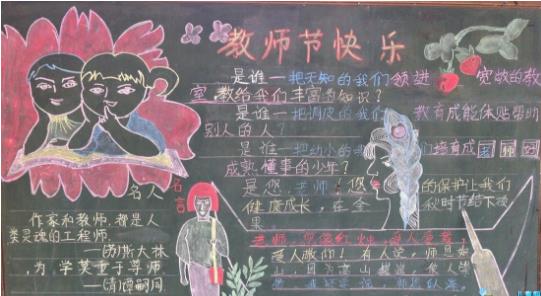 教师节快乐
是谁一把无知的我们领进 宽敞的教
室,教给我们丰富的知识?
是谁一把调皮的我们 教育成能体贴帮助
别人的人?
是谁一把幼小的我们培育成
成熟懂事的少年?
是您,老师!您 的保护让我们
健康成长,在金 秋时节结下硕
果
名人
名言
作家和教师,都是人
类灵魂的工程师.
斯大林
为学莫重于尊师
谭嗣同
老师,您像红烛,受人爱
受人敬仰!有人说,师恩如
山,因为高山 使人